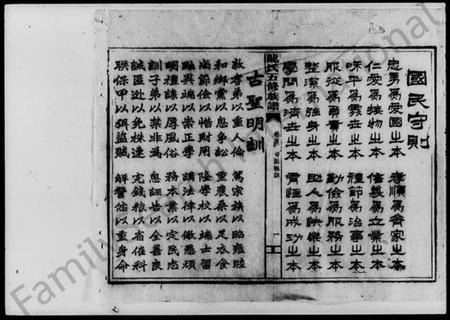 國民守則
忠勇為愛國之本 孝順為齊家之本
仁愛為接物之本 信義為立業之本
和平為處世之本 禮節為治事之本
服從為負責之本 勤儉為服務之本
整潔為強身之本 助人為快樂之本
學問為濟世之本 有恆為成功之本
龍氏五修族譜
古聖明訓
敦孝弟以重人倫 篤宗族以昭雍睦
和鄉黨以息爭訟 重農桑以足衣食
尚節儉以惜財用 隆學校以端士習
黜異端以崇正學 講法律以儆愚頑
明禮讓以厚風俗 務本業以定民志
訓子弟以禁非為 息誣告以全善良
誡匿逃以免株連 完錢糧以省催科
聯保甲以弭盜賊 解讐忿以重身命